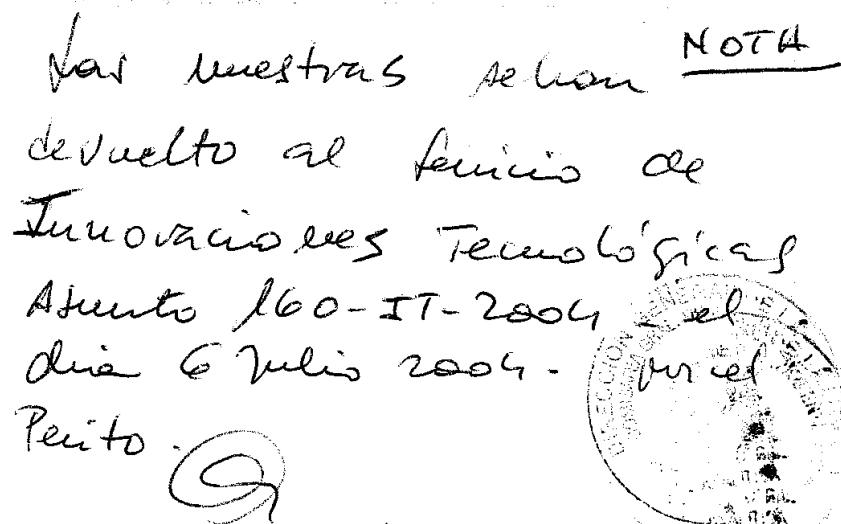 NOTA
Las muestras se han
devuelto al Servicio de
Innovaciones Tecnológicas
Asunto 160-IT-2004 - el
dia 6 Julio 2004 - por el
Perito.
DIRECCION GENERAL